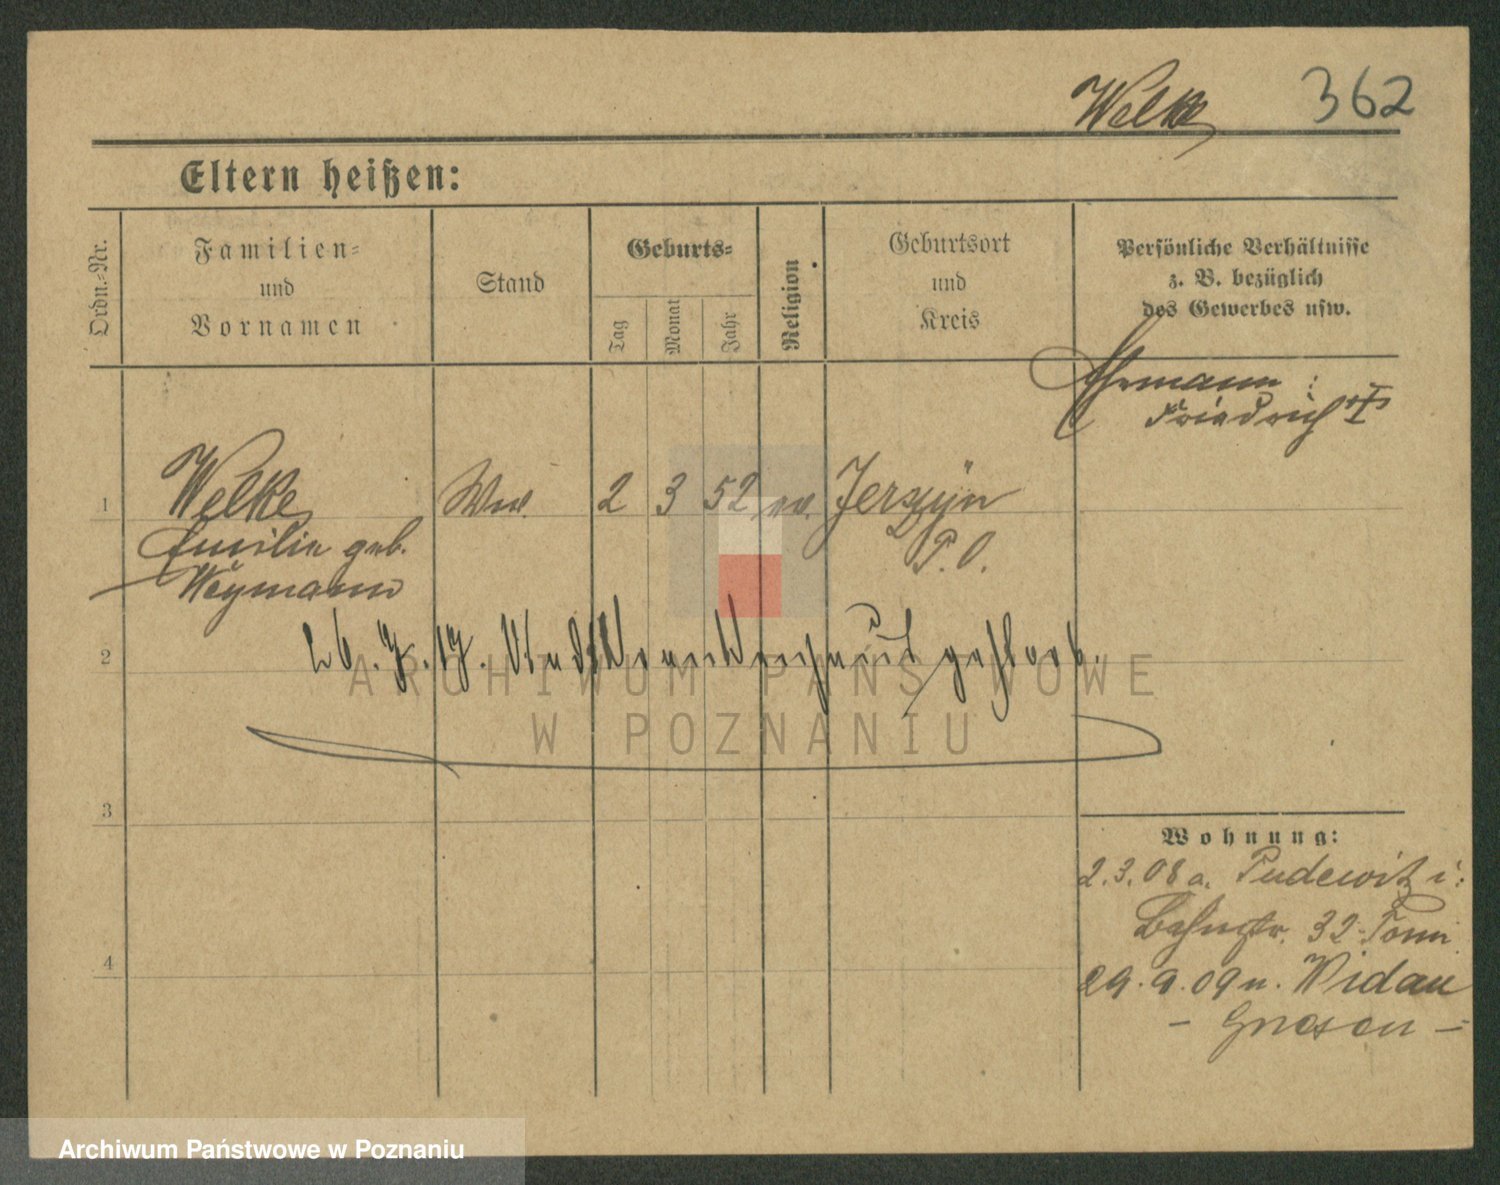 Welke 362
Eltern heißen:
Ordn.-Nr.
Familien-
und
Vornamen
Stand
Geburts-
Tag
Monat
Jahr
Religion
Geburtsort
und
Kreis
Persönliche Verhältnisse
z. B. bezüglich
des Gewerbes usw.
Ehemann:
Friedrich †
1 Welke Ww. 2 3 52 ev. Jerzyn
Emilie geb. P. O.
Weymann
2
ARCHIWUM PAŃSTWOWE
W POZNANIU
3
Wohnung:
2.3.08 a. Pudewitz i:
Bahnstr. 32
4
29.9.09 n. Widau
- Gnesen -
Archiwum Państwowe w Poznaniu